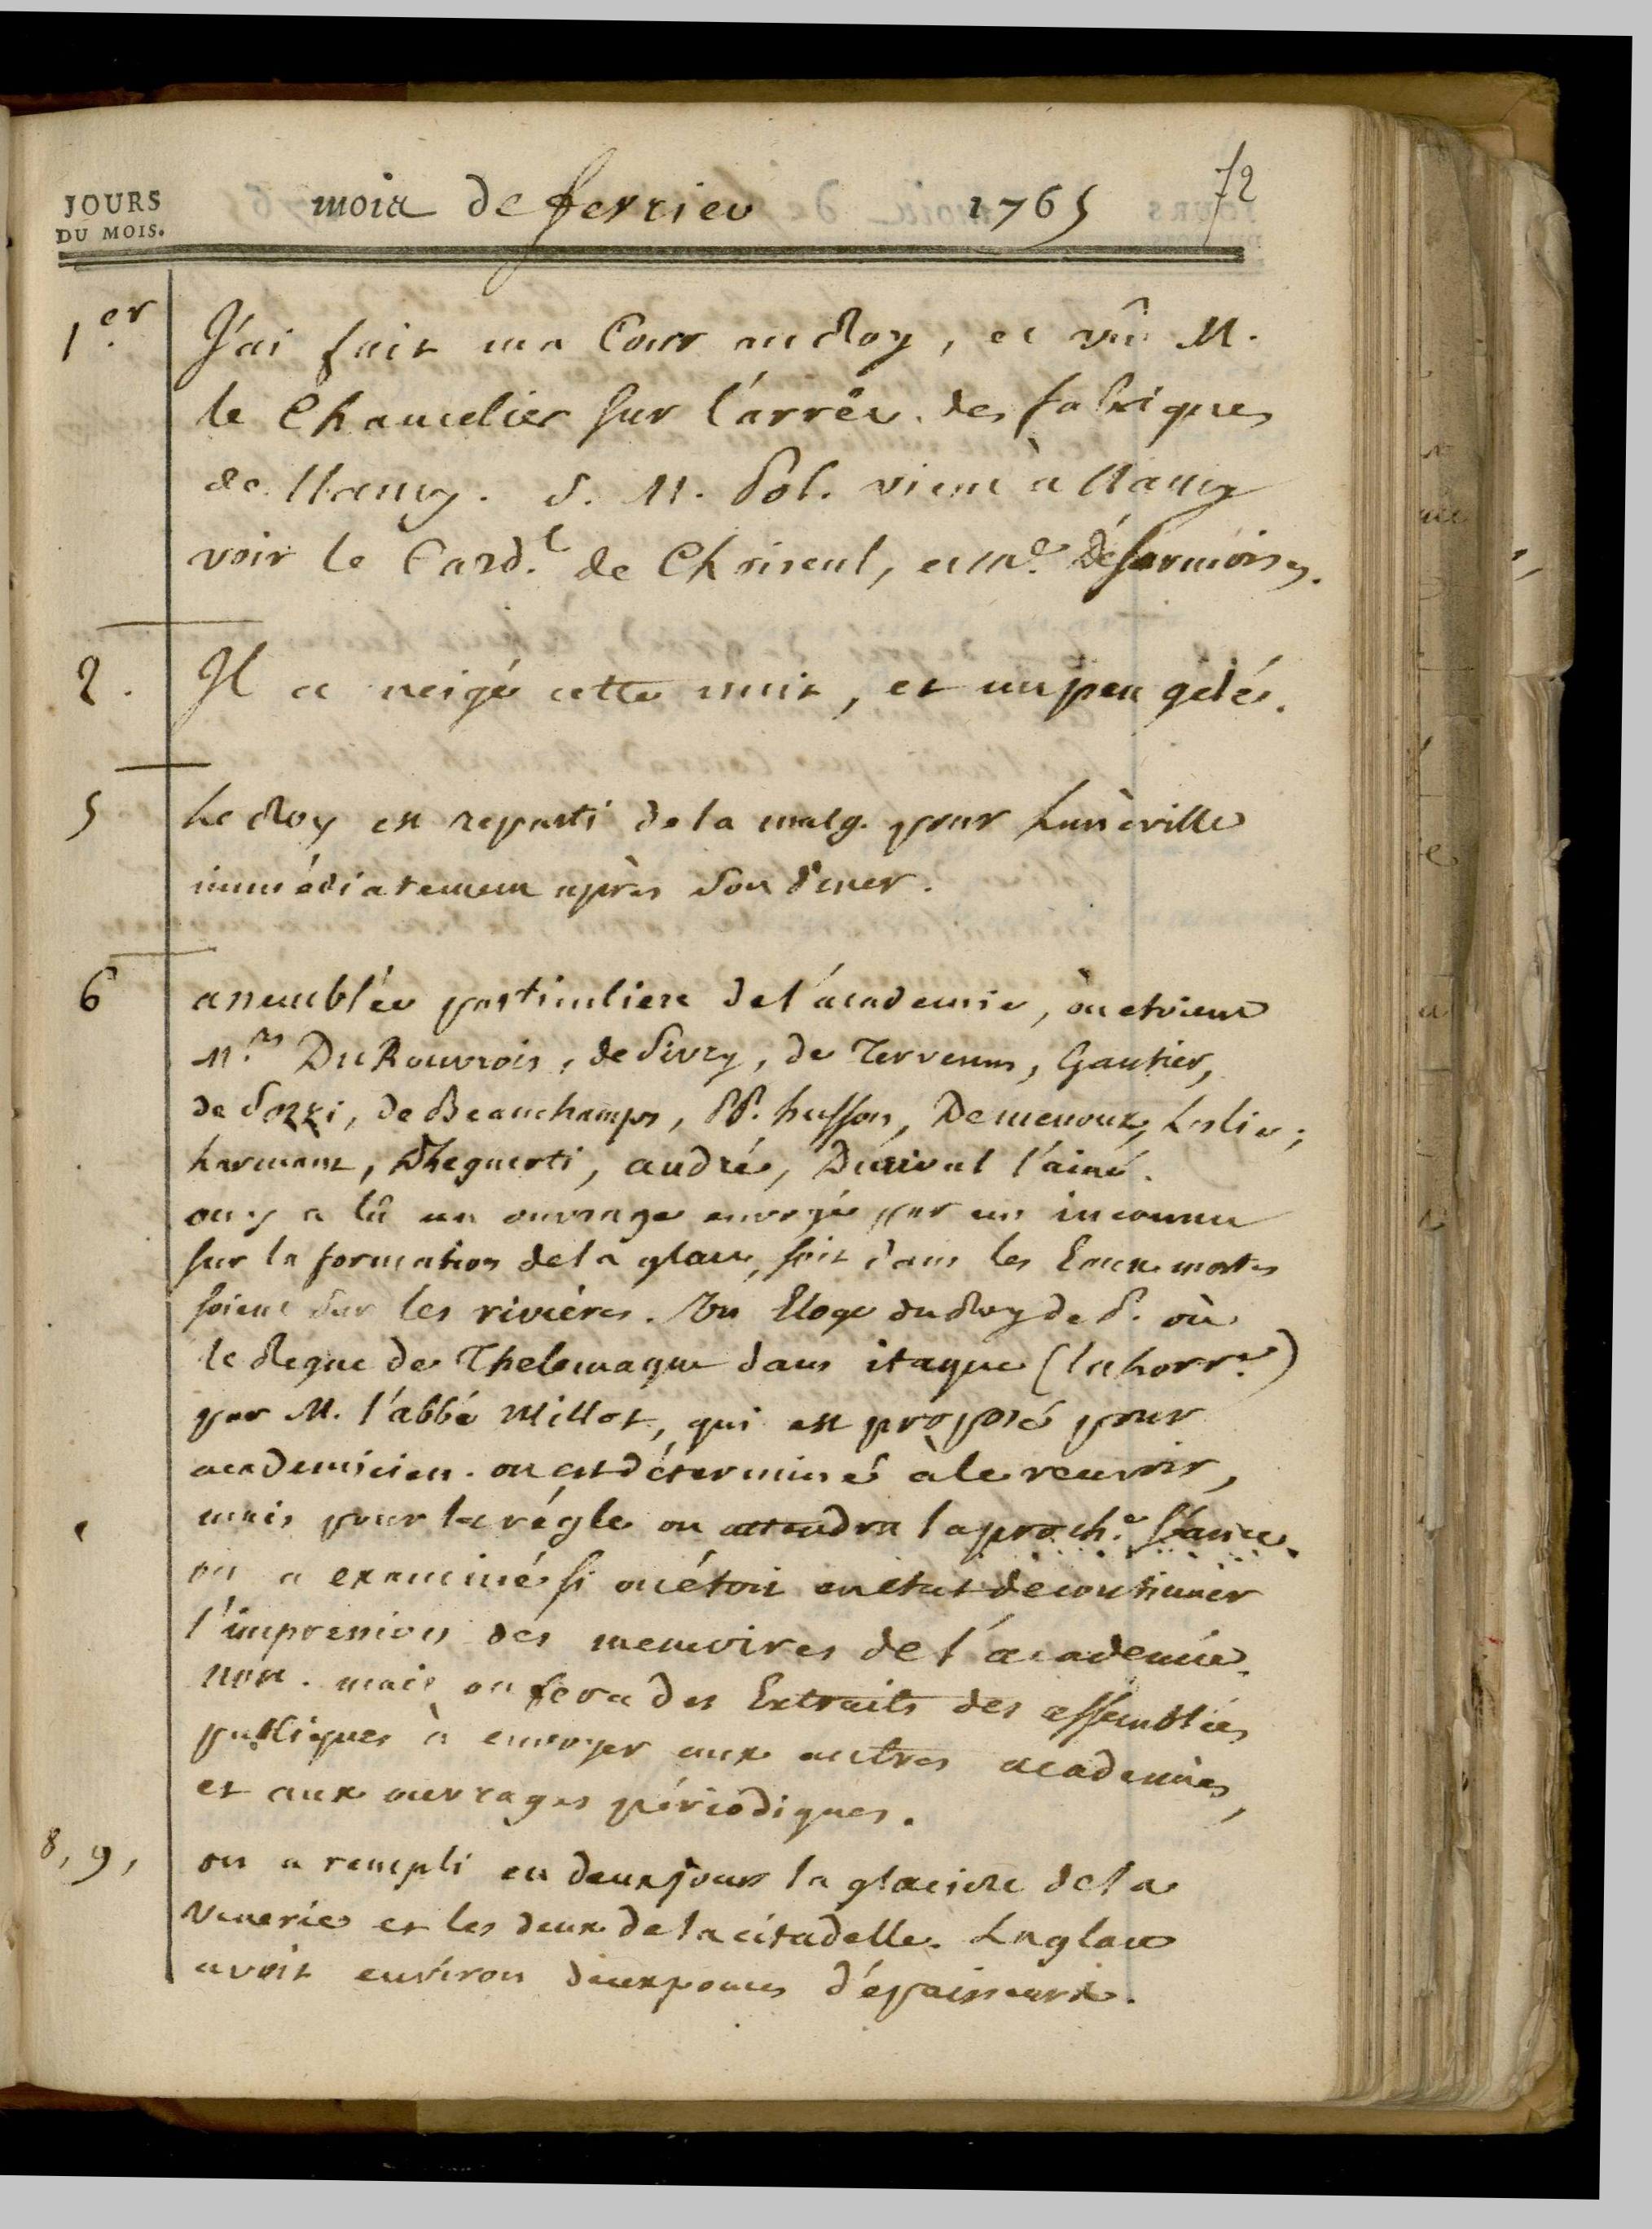 JOURS
DU MOIS.
mois de fevrier 1765
72
1er. J'ai fait ma Cour au Roy, et vû M.
le Chancelier sur l'arrêt des fabriques
de Nancy. S. M. Pol. vient à Nancy
voir le Card.l de Choiseul, et Me. Désarmoises.
2. Il a neigé cette nuit, et un peu gêlé.
5 Le Roy est reparti de la malg. pour Lunéville
immédiatement après son diner.
6 assemblée particuliere de l'academie, où etoient
M.rs Du Rouvrois, de Sivry, de Tervenus, Gautier,
de Sozzi, de Beauchamps, PP. husson, Demenoux, Leslie;
harmant, Thegnerti, andré, Durival l'ainé.
on y a lû un ouvrage envoyé par un inconnu
sur la formation de la glace, soit dans les Eaux mortes
soient sur les rivières. Un Eloge du Roy de P. où
le Regne de Thelemaque dans itaque (la Lorr.e)
par M. l'abbé Millot, qui est proposé pour
academicien. on est déterminé à le recevoir,
mais pour la régle on attendra la proch.e séance.
on a examiné si on étoit en etat de continuer
l'impression des memoires de l'academie.
non. mais on fera des Extraits des assemblées
publiques à envoyer aux autres academies,
et aux ouvrages périodiques.
8, 9, on a rempli en deux jours la glaciere de la
Venerie et les deux de la citadelle. La glace
avoit environ deux pouces d'épaisseur.